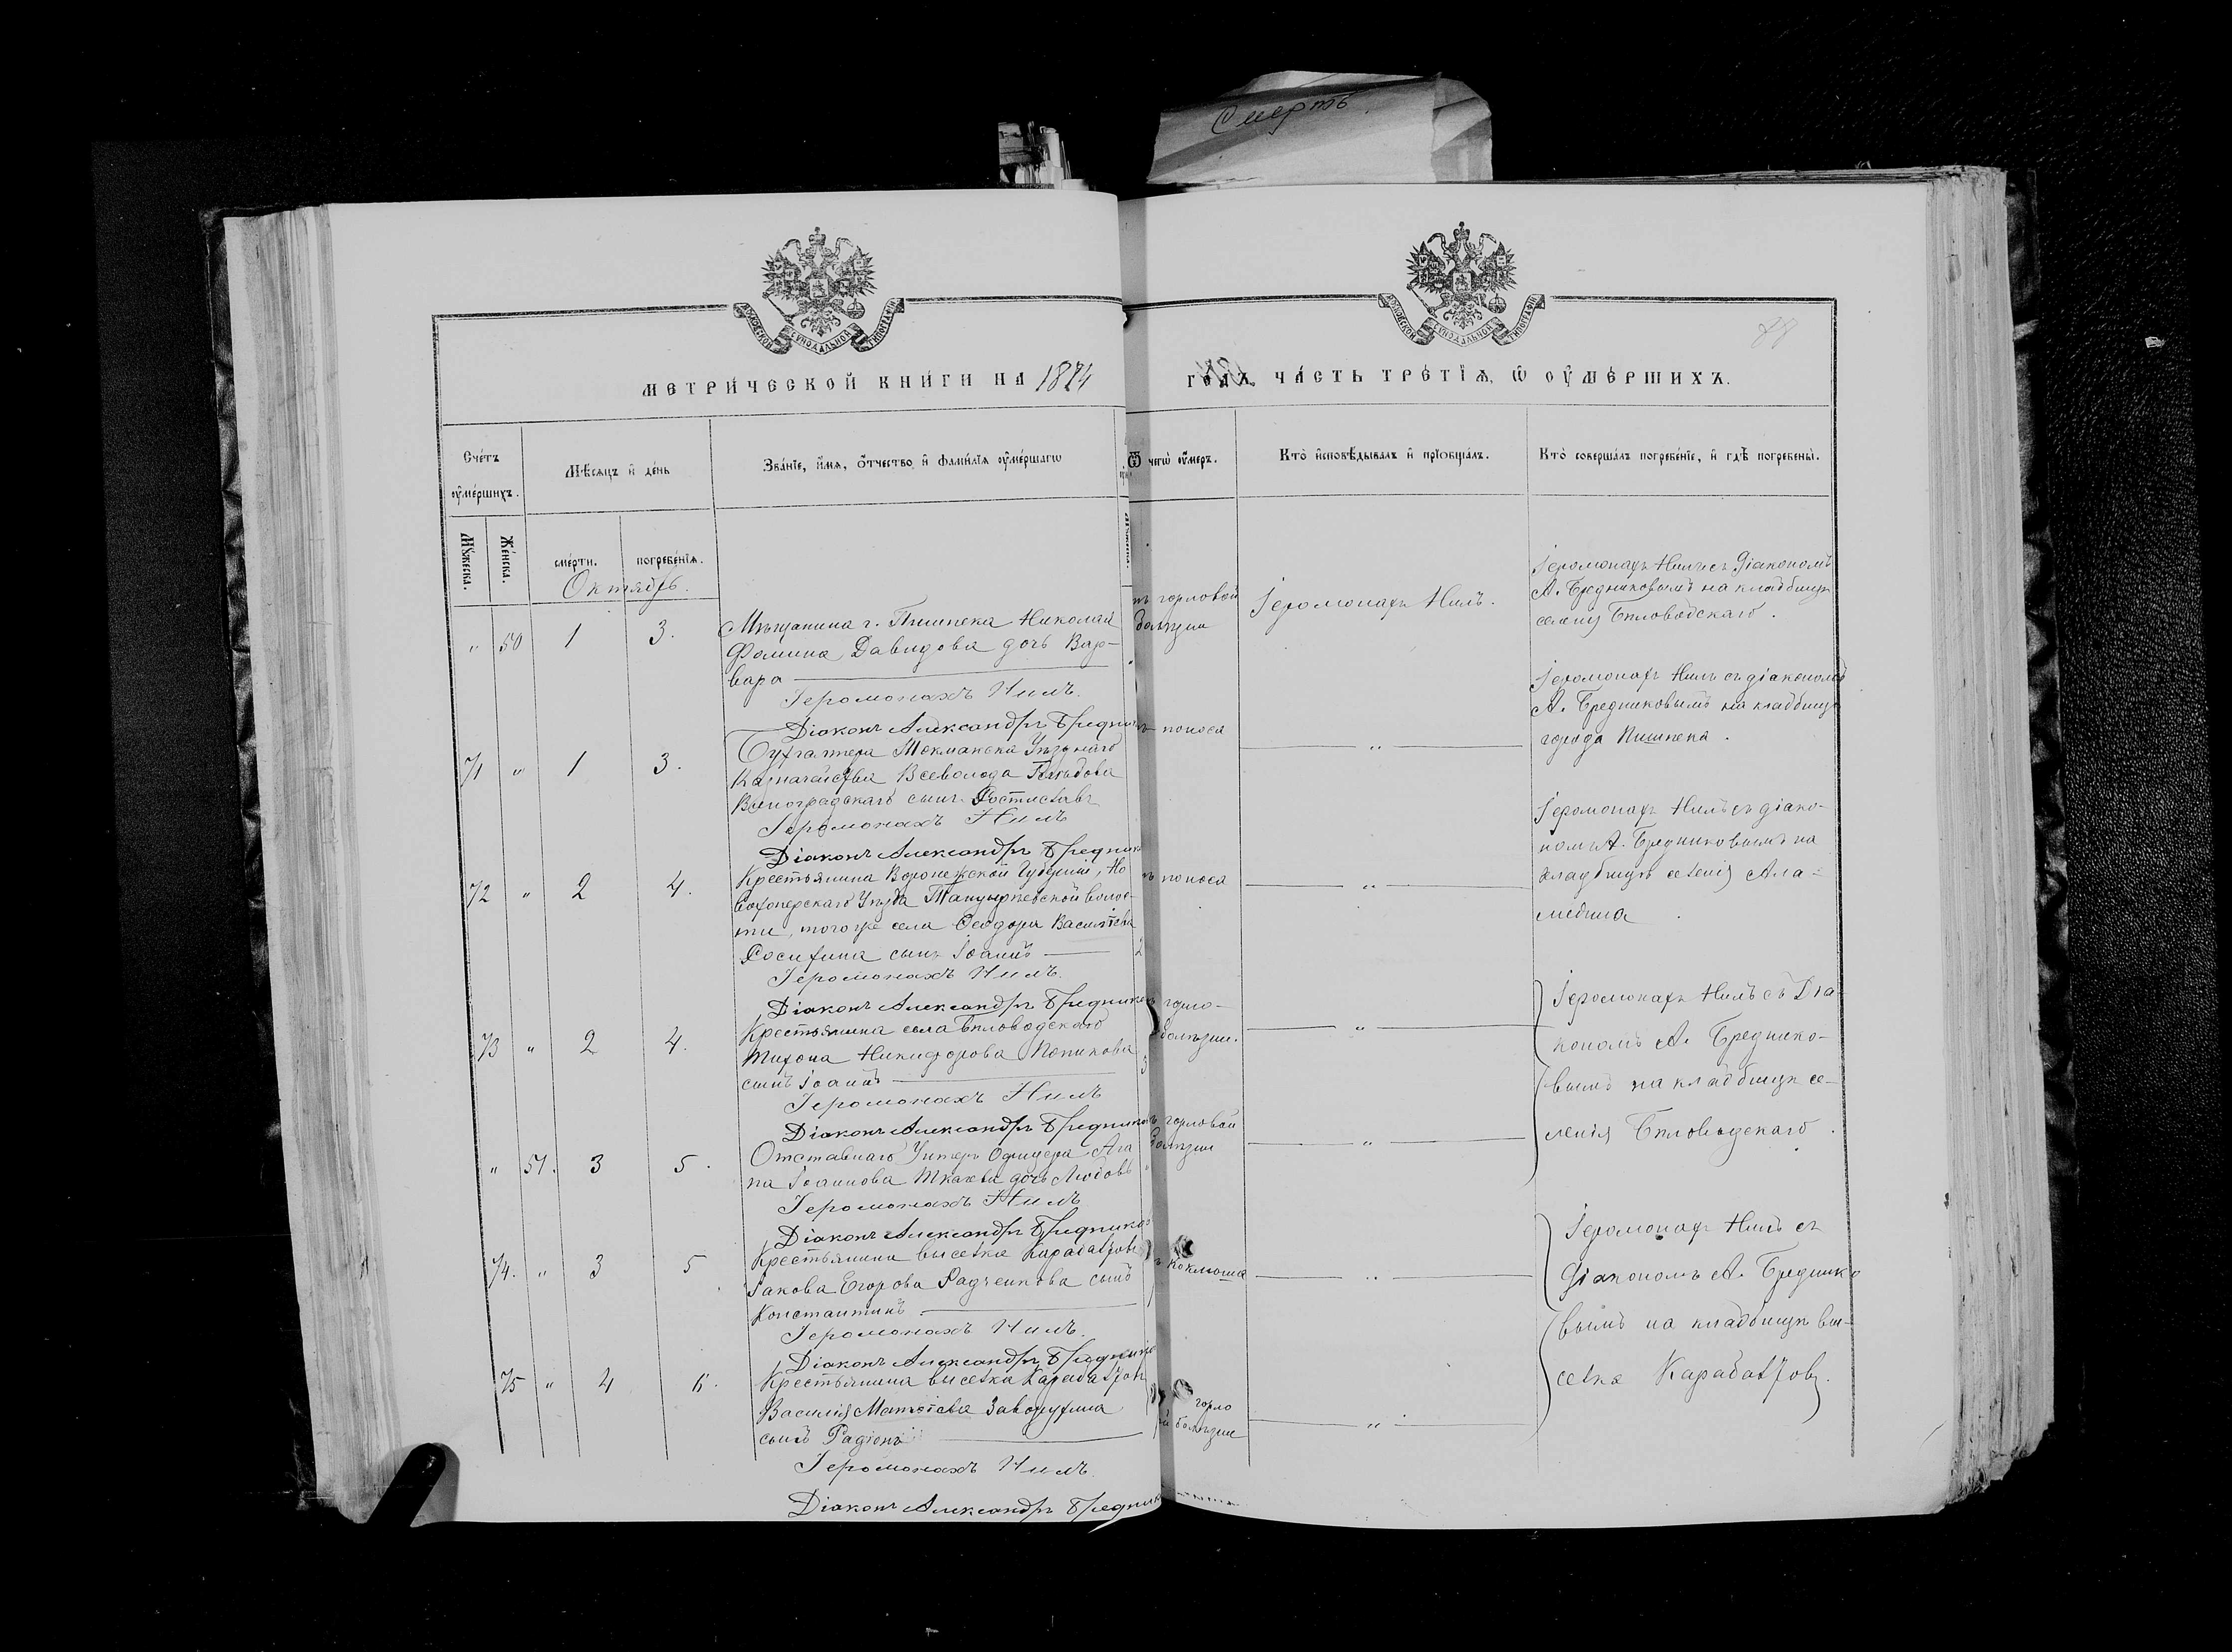 Смерть
МОСКОВСКОЙ СΥНОДАЛЬНОЙ ТИПОГРАФІИ
МОСКОВСКОЙ СΥНОДАЛЬНОЙ ТИПОГРАФІИ
МЕТРИ́ЧЕСКОЙ КНИ́ГИ НА 1874
ГОДЪ, ЧА́СТЬ ТРЕ́ТІѦ, Ѡ ОУ҆МЕ́РШИХЪ.
Сче́тъ оу҆ме́ршихъ.
Мѣ́сяцъ и҆ де́нь
Зва́нїе, и҆́мѧ, о҆́тчество и҆ фами́лїѧ оу҆ме́ршагѡ
Ѿ чегѡ̀ оу҆́меръ.
Кто̀ и҆сповѣ́дывалъ и҆ прїѡбща́лъ.
Кто̀ соверша́лъ погребе́нїе, и҆ гдѣ̀ погребены̀.
Мꙋ́жеска.
Же́нска.
сме́рти.
погребе́нїѧ.
Октябрь.
" 50 1 3.
Мѣщанина г. Пишпека Николая
Фомина Давидова дочь Вар-
вара
Іеромонахъ Нилъ.
Діаконъ Александръ Бредник
горловой
болѣзни
Іеромонахъ Нилъ.
Іеромонахъ Нилъ съ Діакономъ
А. Бредниковымъ на кладбищѣ
селенія Бѣловодскаго.
71 " 1 3.
Бухгалтера Токмакска Уѣзднаго
Казначейства Всеволода
Виноградскаго сынъ Ростиславъ
Іеромонахъ Нилъ
Діаконъ Александръ Бредник
поноса
"
Іеромонахъ Нилъ съ діакономъ
А. Бредниковымъ на кладбищѣ
города Пишпека.
72 " 2 4.
Крестьянина Воронежской Губерніи, Но
вохоперскаго Уѣзда волос-
ти, того же села Ѳеодора Васильева
сынъ Іоаннъ
Іеромонахъ Нилъ.
Діаконъ Александръ Бредников
поноса
"
Іеромонахъ Нилъ съ діако-
номъ А. Бредниковымъ на
кладбищѣ селенія Ала-
медина
73 " 2 4.
Крестьянина села Бѣловодскаго
Тихона Никифорова Попикова
сынъ Іоаннъ
Іеромонахъ Нилъ
Діаконъ Александръ Бредников
горло-
болѣзни.
"
Іеромонахъ Нилъ съ Діа-
кономъ А. Бреднико-
вымъ на кладбищѣ се-
ленія Бѣловодскаго.
" 51. 3 5.
Отставнаго Унтеръ Офицера Ага
па Іоаннова Ткачева дочь Любовь
Іеромонахъ Нилъ
Діаконъ Александръ Бредников
горловой
болѣзни
"
74. " 3 5
Крестьянина выселка Карабалты
Іакова Егорова Радченкова сынъ
Константинъ
Іеромонахъ Нилъ.
Діаконъ Александръ Бреднико
коклюша
"
Іеромонахъ Нилъ съ
Діакономъ А. Бреднико
вымъ на кладбищѣ вы-
селка
75 " 4 6.
Крестьянина выселка
Василія Матвѣева
сынъ Радіонъ
Іеромонахъ Нилъ.
Діаконъ Александръ Бредник
горло
й болѣзни
"